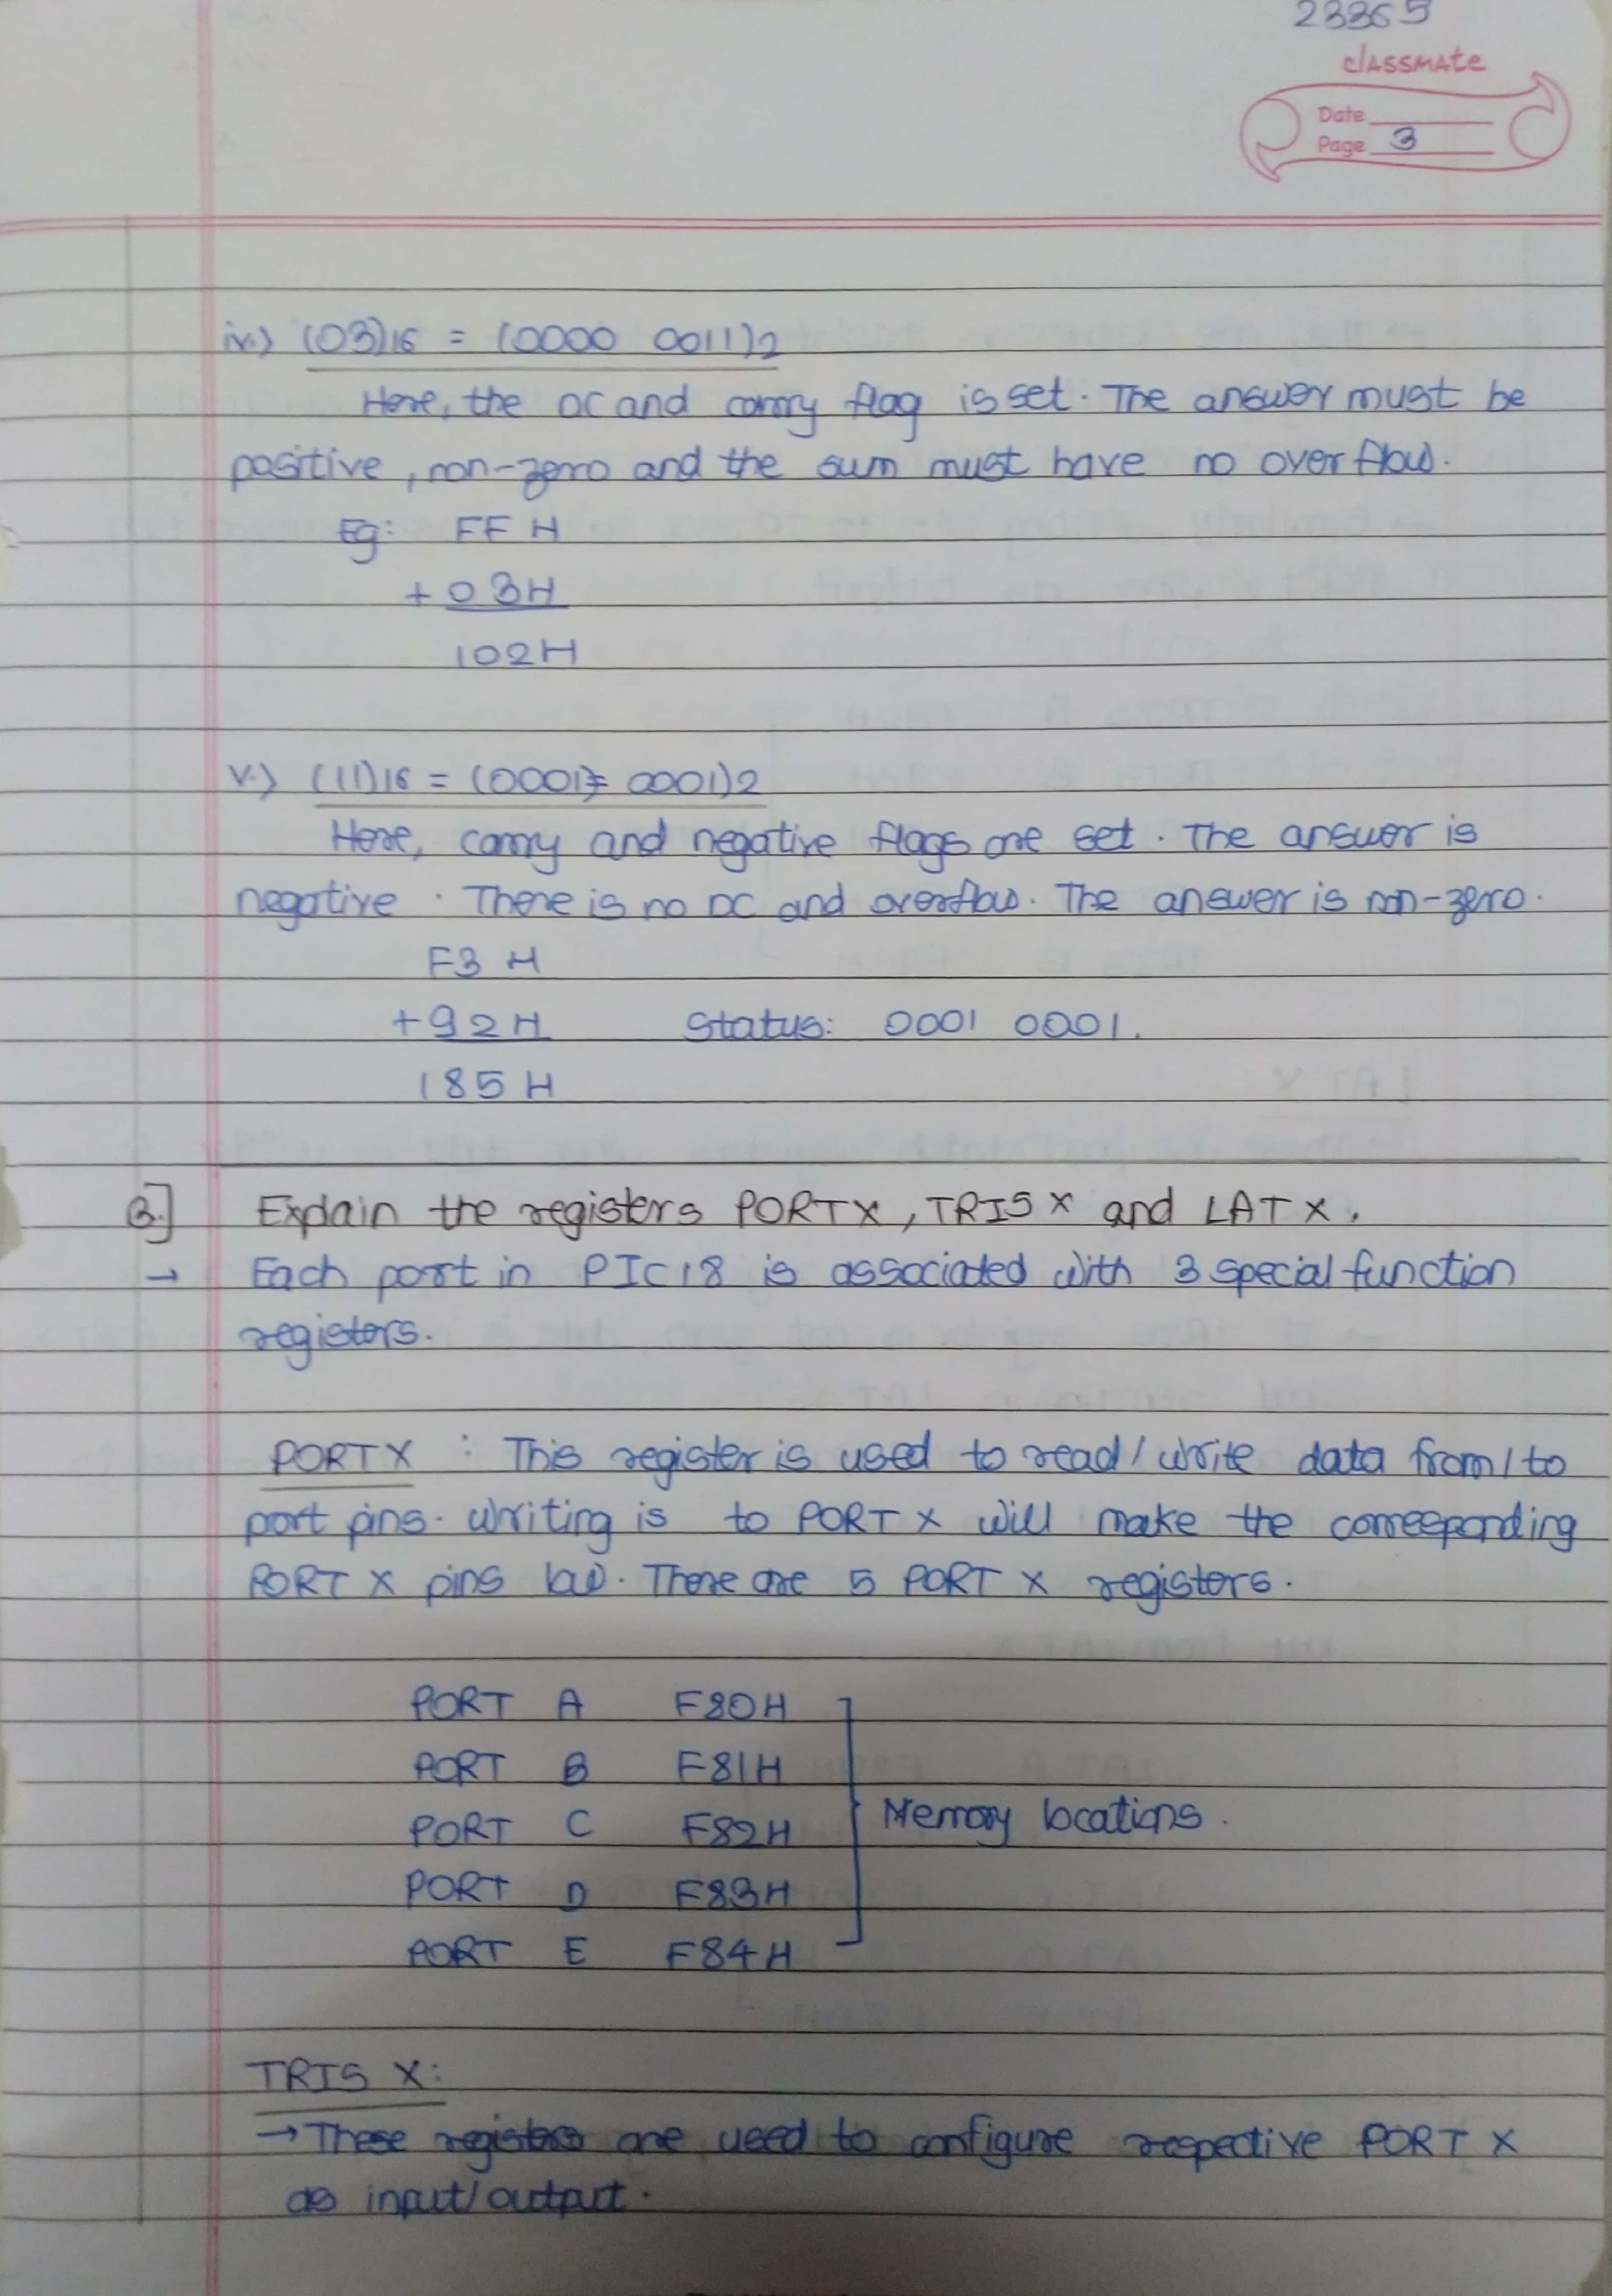 23365
classmate
Date
Page 3
iv.) (03)16 = (0000 0011)2
Here, the DC and carry flag is set. The answer must be
positive, non-zero and the sum must have no overflow.
Eg: FF H
+ 03H
102H
v.) (11)16 = (0001 0001)2
Here, carry and negative flags are set. The answer is
negative. There is no DC and overflow. The answer is non-zero.
F3 H
+92H Status: 0001 0001.
185 H
3.] Explain the registers PORTX, TRIS X and LAT X.
→ Each port in PIC18 is associated with 3 special function
registers.
PORT X : This register is used to read/write data from/to
port pins. Writing is to PORT X will make the corresponding
PORT X pins low. There are 5 PORT X registers.
PORT A F80H
PORT B F81H
PORT C F82H Memory locations.
PORT D F83H
PORT E F84H
TRIS X:
→ These registers are used to configure respective PORT X
as input/output.